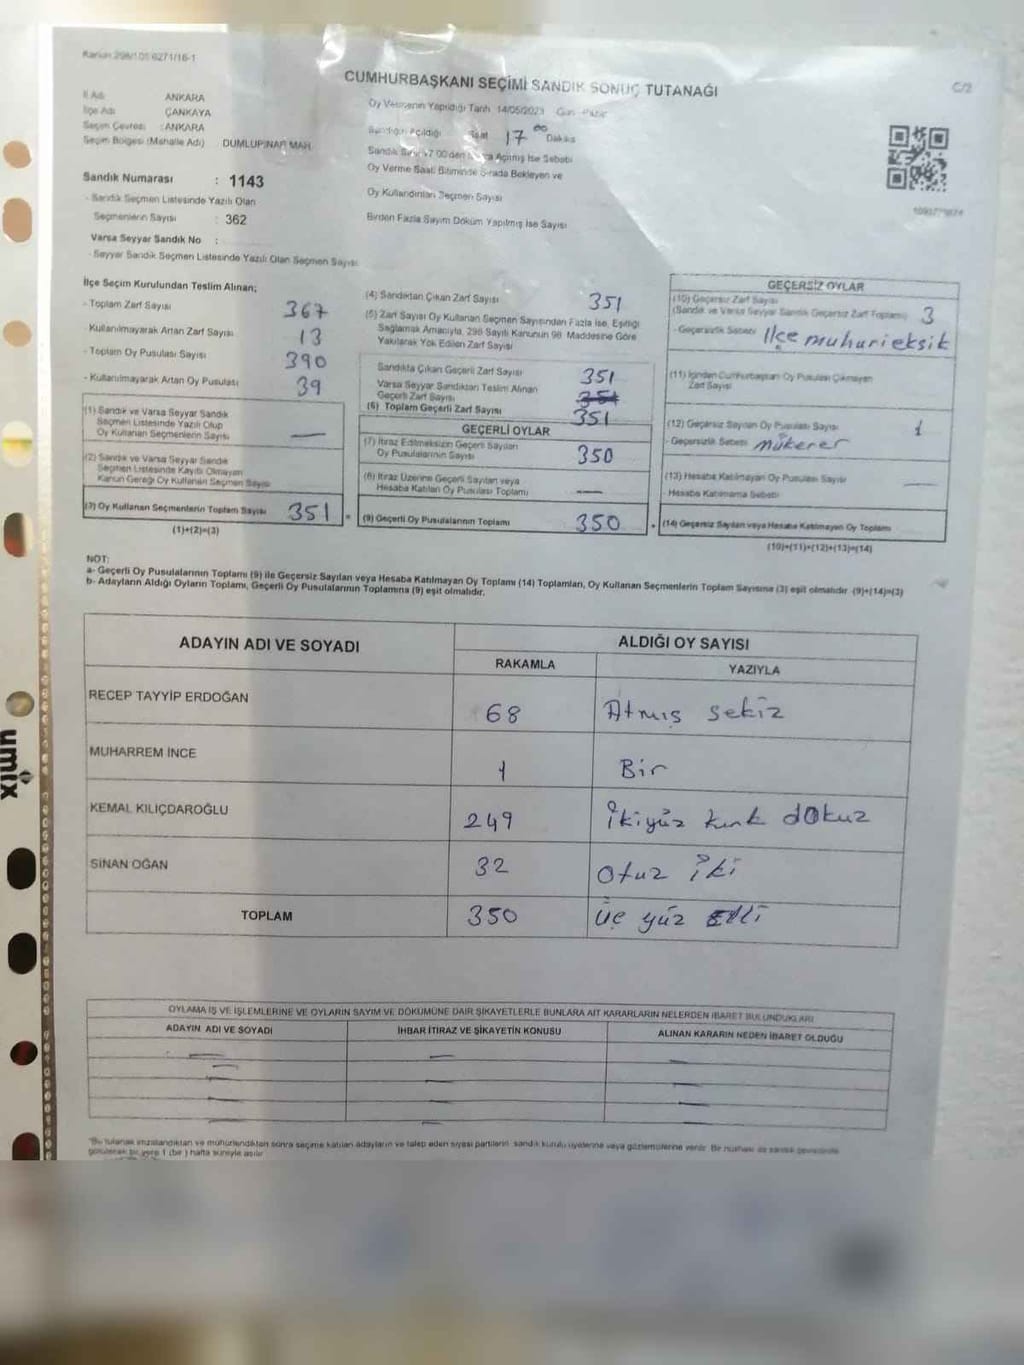 Kanun 298/105 6271/16-1
CUMHURBAŞKANI SEÇİMİ SANDIK SONUÇ TUTANAĞI
C/2
İl Adı ANKARA
İlçe Adı ÇANKAYA
Seçim Çevresi : ANKARA
Seçim Bölgesi (Mahalle Adı) DUMLUPINAR MAH.
Sandık Numarası : 1143
- Sandık Seçmen Listesinde Yazılı Olan
Seçmenlerin Sayısı : 362
Varsa Seyyar Sandık No :
- Seyyar Sandık Seçmen Listesinde Yazılı Olan Seçmen Sayısı
Oy Vermenin Yapıldığı Tarih 14/05/2023 Gün Pazar
Sandığın Açıldığı Saat 17 00 Dakika
Açılmış İse Sebebi
Oy Verme Saati Bitiminde Sırada Bekleyen ve
Oy Kullandırılan Seçmen Sayısı
Birden Fazla Sayım Döküm Yapılmış İse Sayısı
İlçe Seçim Kurulundan Teslim Alınan;
- Toplam Zarf Sayısı 367
- Kullanılmayarak Artan Zarf Sayısı 13
- Toplam Oy Pusulası Sayısı 390
- Kullanılmayarak Artan Oy Pusulası 39
(1) Sandık ve Varsa Seyyar Sandık
Seçmen Listesinde Yazılı Olup
Oy Kullanan Seçmenlerin Sayısı —
(2) Sandık ve Varsa Seyyar Sandık
Seçmen Listesinde Kayıtlı Olmayan
Kanun Gereği Oy Kullanan Seçmen Sayısı
(3) Oy Kullanan Seçmenlerin Toplam Sayısı 351 =
(1)+(2)=(3)
(4) Sandıktan Çıkan Zarf Sayısı 351
(5) Zarf Sayısı Oy Kullanan Seçmen Sayısından Fazla İse, Eşitliği
Sağlamak Amacıyla, 298 Sayılı Kanunun 98. Maddesine Göre
Yakılarak Yok Edilen Zarf Sayısı
Sandıkta Çıkan Geçerli Zarf Sayısı 351
Varsa Seyyar Sandıktan Teslim Alınan
Geçerli Zarf Sayısı 351
(6) Toplam Geçerli Zarf Sayısı 351
GEÇERLİ OYLAR
(7) İtiraz Edilmeksizin Geçerli Sayılan
Oy Pusulalarının Sayısı 350
(8) İtiraz Üzerine Geçerli Sayılan veya
Hesaba Katılan Oy Pusulası Toplamı —
(9) Geçerli Oy Pusulalarının Toplamı 350
GEÇERSİZ OYLAR
(10) Geçersiz Zarf Sayısı
(Sandık ve Varsa Seyyar Sandık Geçersiz Zarf Toplamı) 3
- Geçersizlik Sebebi İlçe muhuri eksik
(11) İçinden Cumhurbaşkanı Oy Pusulası Çıkmayan
Zarf Sayısı
(12) Geçersiz Sayılan Oy Pusulası Sayısı 1
- Geçersizlik Sebebi mükerer
(13) Hesaba Katılmayan Oy Pusulası Sayısı —
Hesaba Katılmama Sebebi
(14) Geçersiz Sayılan veya Hesaba Katılmayan Oy Toplamı
(10)+(11)+(12)+(13)=(14)
NOT:
a- Geçerli Oy Pusulalarının Toplamı (9) ile Geçersiz Sayılan veya Hesaba Katılmayan Oy Toplamı (14) Toplamları, Oy Kullanan Seçmenlerin Toplam Sayısına (3) eşit olmalıdır (9)+(14)=(3)
b- Adayların Aldığı Oyların Toplamı, Geçerli Oy Pusulalarının Toplamına (9) eşit olmalıdır.
ADAYIN ADI VE SOYADI ALDIĞI OY SAYISI
RAKAMLA YAZIYLA
RECEP TAYYİP ERDOĞAN 68 Atmış sekiz
MUHARREM İNCE 1 Bir
KEMAL KILIÇDAROĞLU 249 İkiyüz kırk dokuz
SİNAN OĞAN 32 otuz iki
TOPLAM 350 üç yüz Elli
OYLAMA İŞ VE İŞLEMLERİNE VE OYLARIN SAYIM VE DÖKÜMÜNE DAİR ŞİKAYETLERLE BUNLARA AİT KARARLARIN NELERDEN İBARET BULUNDUKLARI
ADAYIN ADI VE SOYADI İHBAR İTİRAZ VE ŞİKAYETİN KONUSU ALINAN KARARIN NEDEN İBARET OLDUĞU
*Bu tutanak imzalandıktan ve mühürlendikten sonra seçime katılan adayların ve talep eden siyasi partilerin sandık kurulu üyelerine veya gözlemcilerine verilir. Bir nüshası da sandık çevresinde
görülecek bir yere 1 (bir) hafta süreyle asılır
umix